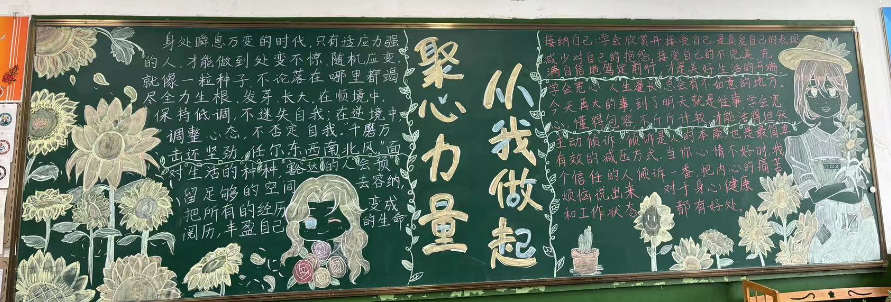 身处瞬息万变的时代,只有适应力强
的人,才能做到处变不惊,随机应变,
就像一粒种子,不论落在哪里都竭
尽全力生根、发芽、长大,在顺境中
保持低调,不迷失自我;在逆境中
调整心态,不否定自我."千磨万
击还坚劲,任尔东西南北风."面
对生活的种种,豁达的人会预
留足够的空间去容纳,
把所有的经历变成
阅历,丰盈自己的生命
聚心力量
从我做起
接纳自己:学会欣赏并接受自己
减少对自己的
学会宽心,人生漫长,总会有不如意的地方,
今天再大的事,到了明天就是往事,学会宽
心,懂得包容,不斤斤计较,才能
主动倾诉:倾诉是人的本能,也是最简单
有效的减压方式.当你心情不好时,找
个信任的人倾诉一番,把内心的痛苦
烦恼说出来,对于身心健康
和工作状态都有好处。